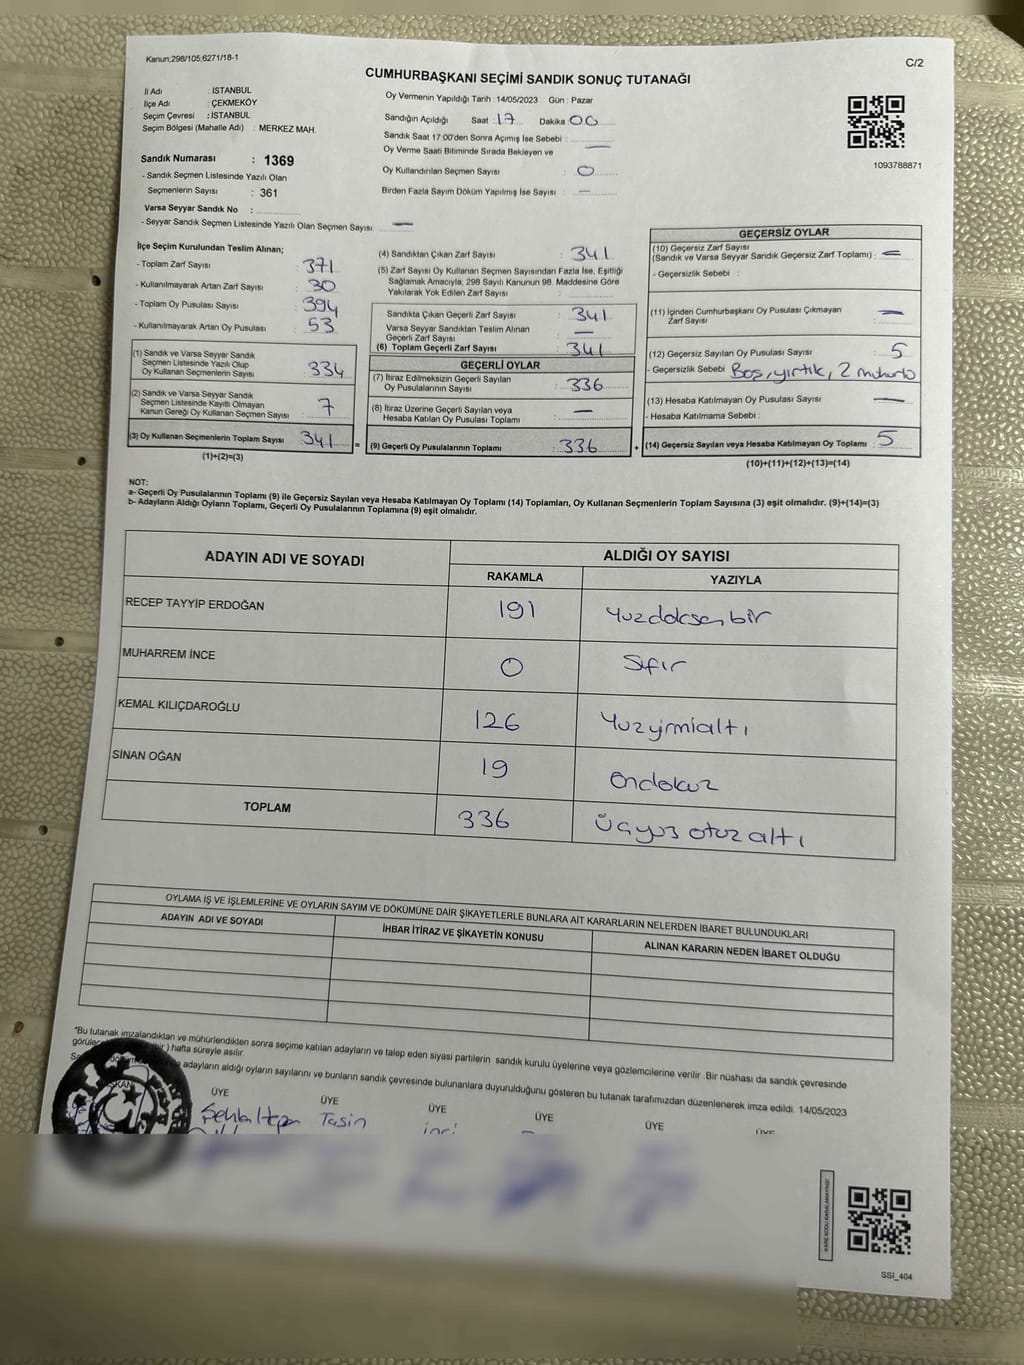 Kanun;298/105;6271/18-1
C/2
CUMHURBAŞKANI SEÇİMİ SANDIK SONUÇ TUTANAĞI
İl Adı : İSTANBUL
İlçe Adı : ÇEKMEKÖY
Seçim Çevresi : İSTANBUL
Seçim Bölgesi (Mahalle Adı) : MERKEZ MAH.
Sandık Numarası : 1369
- Sandık Seçmen Listesinde Yazılı Olan
Seçmenlerin Sayısı : 361
Varsa Seyyar Sandık No :
- Seyyar Sandık Seçmen Listesinde Yazılı Olan Seçmen Sayısı: —
Oy Vermenin Yapıldığı Tarih : 14/05/2023 Gün : Pazar
Sandığın Açıldığı Saat : 17 Dakika 00
Sandık Saat 17:00'den Sonra Açımış İse Sebebi : —
Oy Verme Saati Bitiminde Sırada Bekleyen ve
Oy Kullandırılan Seçmen Sayısı : 0
Birden Fazla Sayım Döküm Yapılmış İse Sayısı : —
1093788871
İlçe Seçim Kurulundan Teslim Alınan;
- Toplam Zarf Sayısı : 371
- Kullanılmayarak Artan Zarf Sayısı : 30
- Toplam Oy Pusulası Sayısı : 394
- Kullanılmayarak Artan Oy Pusulası : 53
(1) Sandık ve Varsa Seyyar Sandık
Seçmen Listesinde Yazılı Olup
Oy Kullanan Seçmenlerin Sayısı : 334
(2) Sandık ve Varsa Seyyar Sandık
Seçmen Listesinde Kayıtlı Olmayan
Kanun Gereği Oy Kullanan Seçmen Sayısı : 7
(3) Oy Kullanan Seçmenlerin Toplam Sayısı : 341
(1)+(2)=(3)
(4) Sandıktan Çıkan Zarf Sayısı : 341
(5) Zarf Sayısı Oy Kullanan Seçmen Sayısından Fazla İse, Eşitliği
Sağlamak Amacıyla, 298 Sayılı Kanunun 98. Maddesine Göre
Yakılarak Yok Edilen Zarf Sayısı :
Sandıkta Çıkan Geçerli Zarf Sayısı : 341
Varsa Seyyar Sandıktan Teslim Alınan
Geçerli Zarf Sayısı : —
(6) Toplam Geçerli Zarf Sayısı : 341
GEÇERLİ OYLAR
(7) İtiraz Edilmeksizin Geçerli Sayılan
Oy Pusulalarının Sayısı : 336
(8) İtiraz Üzerine Geçerli Sayılan veya
Hesaba Katılan Oy Pusulası Toplamı : —
= (9) Geçerli Oy Pusulalarının Toplamı : 336 +
GEÇERSİZ OYLAR
(10) Geçersiz Zarf Sayısı
(Sandık ve Varsa Seyyar Sandık Geçersiz Zarf Toplamı) : —
- Geçersizlik Sebebi :
(11) İçinden Cumhurbaşkanı Oy Pusulası Çıkmayan
Zarf Sayısı : —
(12) Geçersiz Sayılan Oy Pusulası Sayısı : 5
- Geçersizlik Sebebi Boş, yırtık, 2 mühürlü
(13) Hesaba Katılmayan Oy Pusulası Sayısı : —
- Hesaba Katılmama Sebebi :
(14) Geçersiz Sayılan veya Hesaba Katılmayan Oy Toplamı : 5
(10)+(11)+(12)+(13)=(14)
NOT:
a- Geçerli Oy Pusulalarının Toplamı (9) ile Geçersiz Sayılan veya Hesaba Katılmayan Oy Toplamı (14) Toplamları, Oy Kullanan Seçmenlerin Toplam Sayısına (3) eşit olmalıdır. (9)+(14)=(3)
b- Adayların Aldığı Oyların Toplamı, Geçerli Oy Pusulalarının Toplamına (9) eşit olmalıdır.
ADAYIN ADI VE SOYADI ALDIĞI OY SAYISI
RAKAMLA YAZIYLA
RECEP TAYYİP ERDOĞAN 191 Yüzdoksanbir
MUHARREM İNCE 0 Sıfır
KEMAL KILIÇDAROĞLU 126 Yüzyirmialtı
SİNAN OĞAN 19 Ondokuz
TOPLAM 336 Üçyüz otuz altı
OYLAMA İŞ VE İŞLEMLERİNE VE OYLARIN SAYIM VE DÖKÜMÜNE DAİR ŞİKAYETLERLE BUNLARA AİT KARARLARIN NELERDEN İBARET BULUNDUKLARI
ADAYIN ADI VE SOYADI İHBAR İTİRAZ VE ŞİKAYETİN KONUSU ALINAN KARARIN NEDEN İBARET OLDUĞU
*Bu tutanak imzalandıktan ve mühürlendikten sonra seçime katılan adayların ve talep eden siyasi partilerin sandık kurulu üyelerine veya gözlemcilerine verilir. Bir nüshası da sandık çevresinde
bir) hafta süreyle asılır.
adayların aldığı oyların sayılarını ve bunların sandık çevresinde bulunanlara duyurulduğunu gösteren bu tutanak tarafımızdan düzenlenerek imza edildi. 14/05/2023
ÜYE ÜYE ÜYE ÜYE ÜYE ÜYE
Tasin
SSI_404